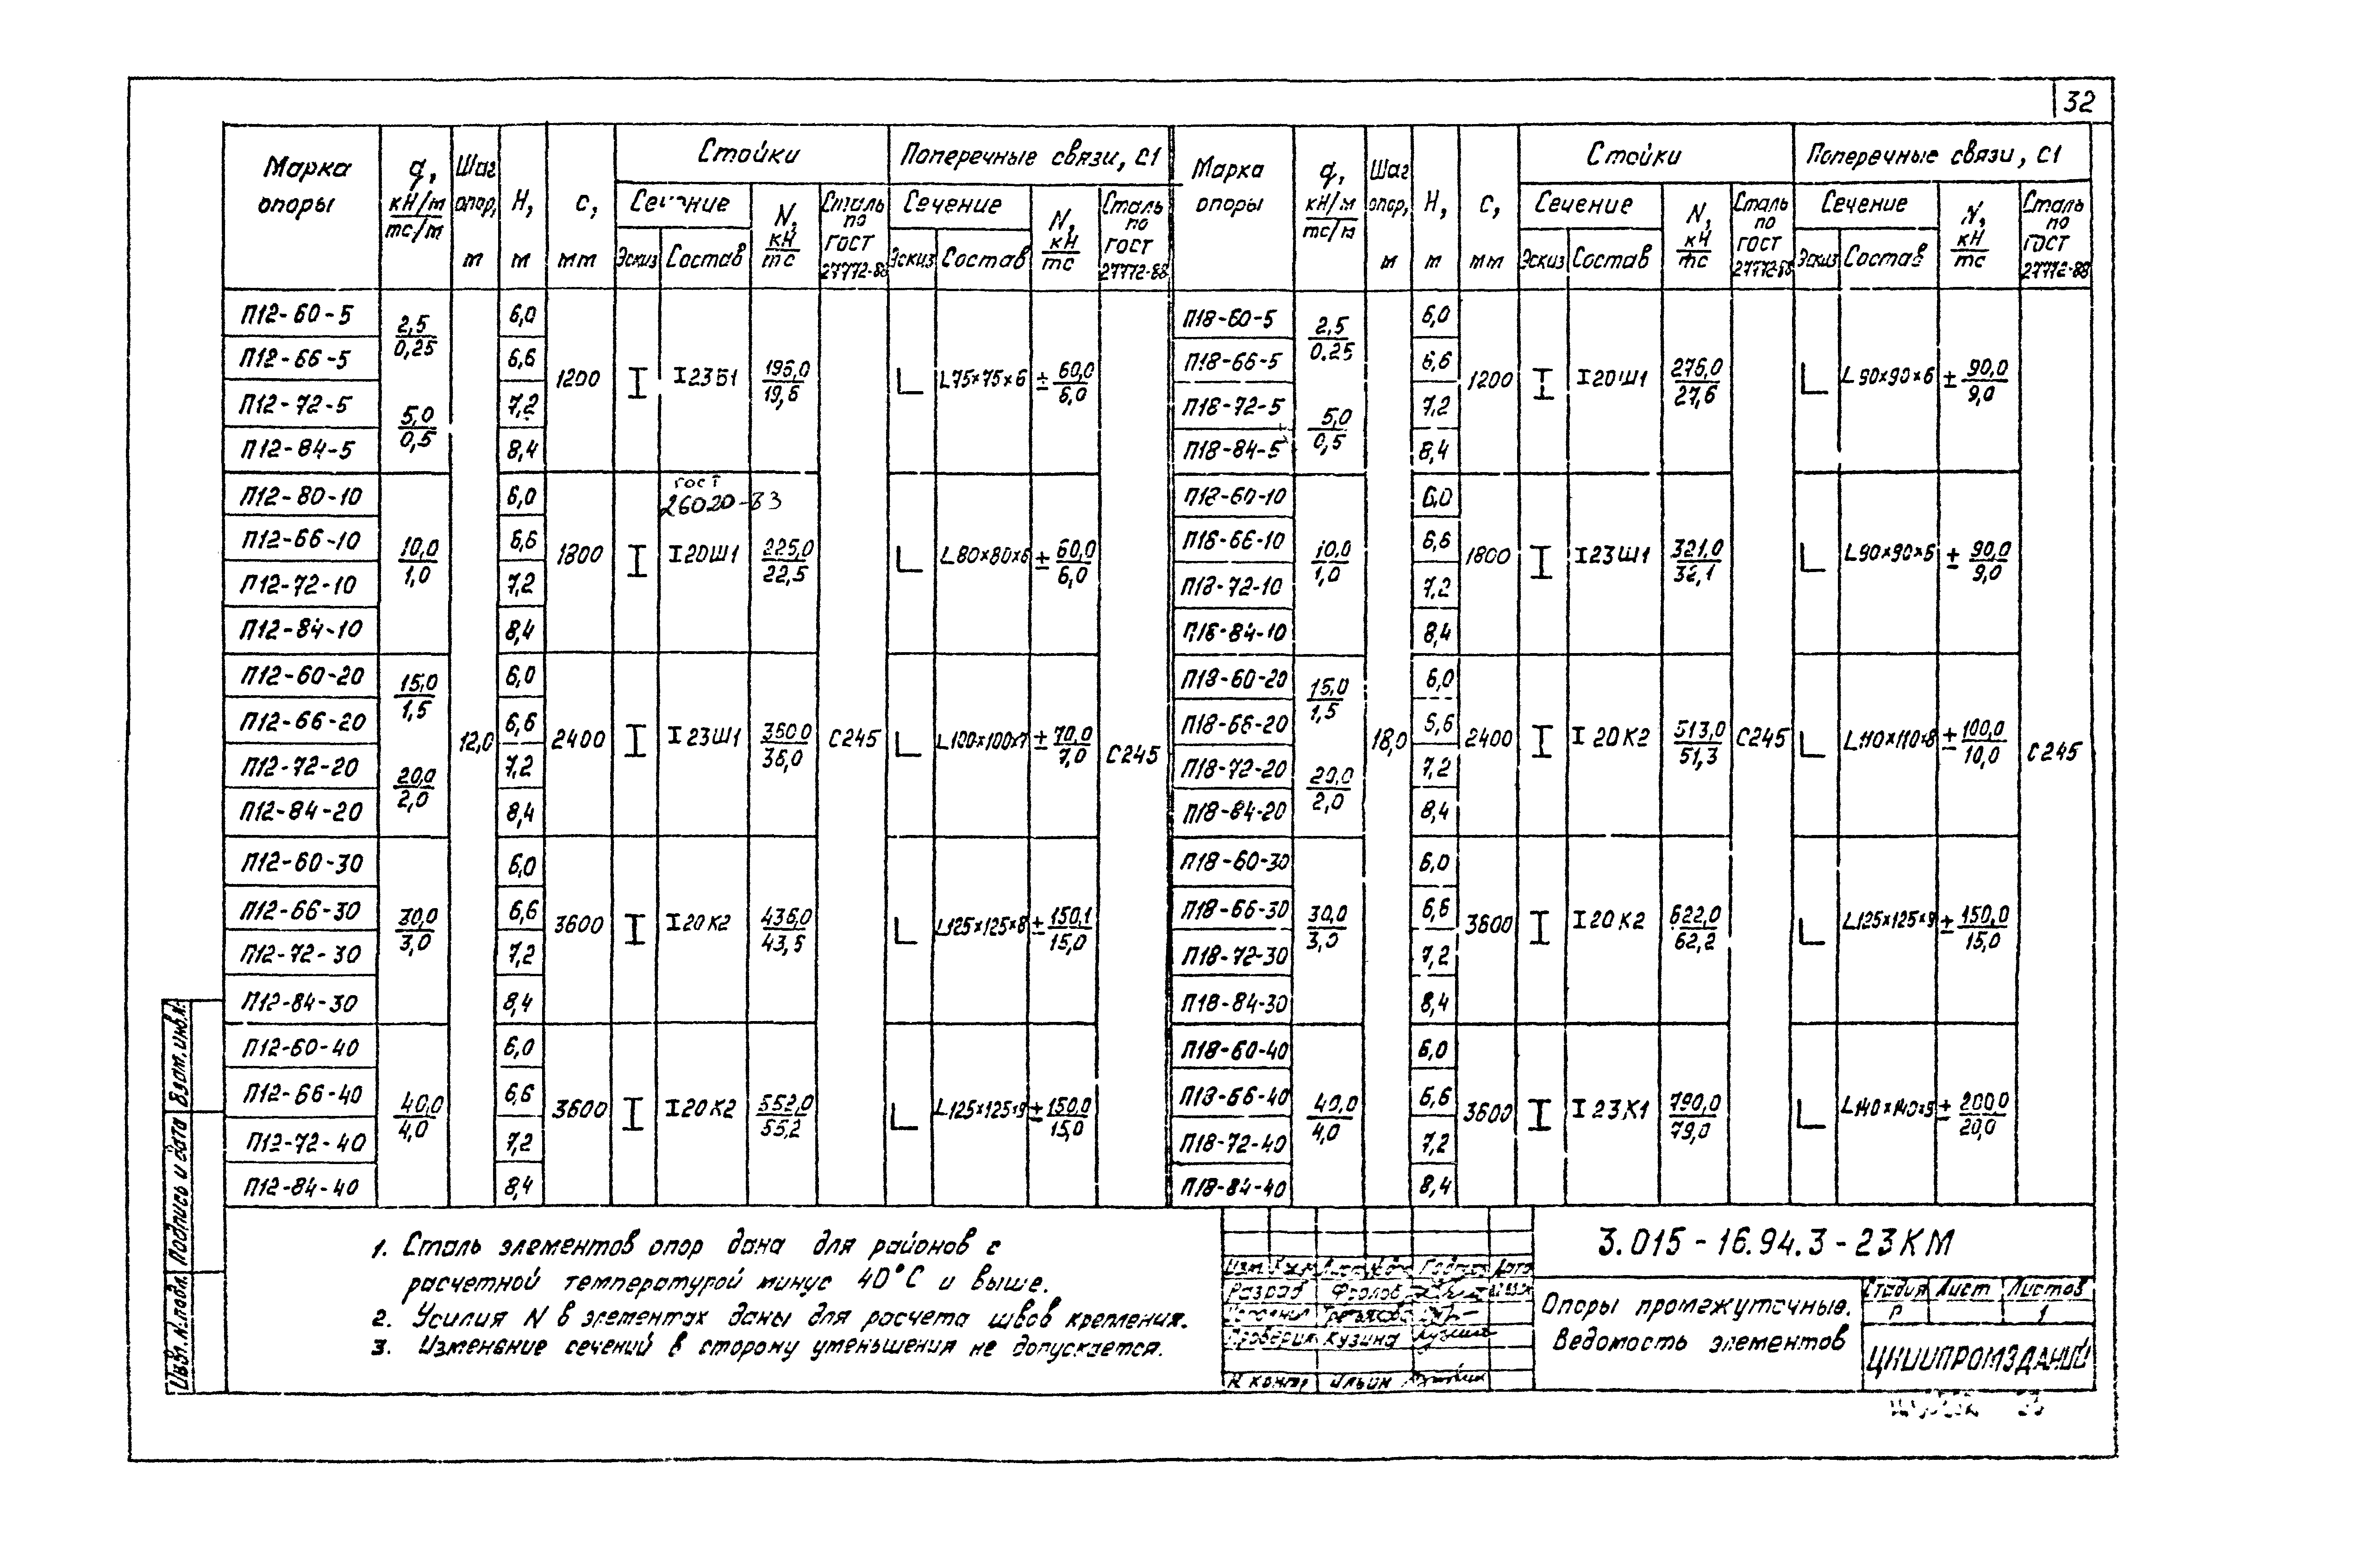 32
Марка опоры
q, кН/м тс/м
Шаг опор, м
Н, м
с, мм
Стойки
Поперечные связи, С1
Сечение
Эскиз
Состав
N, кН тс
Сталь по ГОСТ 27772-88
Сечение
Эскиз
Состав
N, кН тс
Сталь по ГОСТ 27772-88
Марка опоры
q, кН/м тс/м
Шаг опор, м
Н, м
с, мм
Стойки
Поперечные связи, С1
Сечение
Эскиз
Состав
N, кН тс
Сталь по ГОСТ 27772-88
Сечение
Эскиз
Состав
N, кН тс
Сталь по ГОСТ 27772-88
П12-60-5 6,0
П12-66-5 6,6
П12-72-5 7,2
П12-84-5 8,4
2,5 0,25
5,0 0,5
1200 I I 23Б1 196,0 19,6 L L75×75×6 ± 60,0 6,0
П12-80-10 6,0
П12-66-10 6,6
П12-72-10 7,2
П12-84-10 8,4
10,0 1,0
ГОСТ
26020-83
1800 I I 20Ш1 225,0 22,5 L L80×80×6 ± 60,0 6,0
П12-60-20 6,0
П12-66-20 6,6
П12-72-20 7,2
П12-84-20 8,4
15,0 1,5
20,0 2,0
12,0
2400 I I 23Ш1 360,0 36,0 С245 L L100×100×7 ± 70,0 7,0 С245
П12-60-30 6,0
П12-66-30 6,6
П12-72-30 7,2
П12-84-30 8,4
30,0 3,0
3600 I I 20К2 436,0 43,6 L L125×125×8 ± 150,1 15,0
П12-60-40 6,0
П12-66-40 6,6
П12-72-40 7,2
П12-84-40 8,4
40,0 4,0
3600 I I 20К2 552,0 55,2 L L125×125×9 ± 150,0 15,0
П18-60-5 6,0
П18-66-5 6,6
П18-72-5 7,2
П18-84-5 8,4
2,5 0,25
5,0 0,5
1200 I I 20Ш1 276,0 27,6 L L90×90×6 ± 90,0 9,0
П18-60-10 6,0
П18-66-10 6,6
П18-72-10 7,2
П18-84-10 8,4
10,0 1,0
1800 I I 23Ш1 321,0 32,1 L L90×90×6 ± 90,0 9,0
П18-60-20 6,0
П18-66-20 6,6
П18-72-20 7,2
П18-84-20 8,4
15,0 1,5
20,0 2,0
18,0
2400 I I 20К2 513,0 51,3 С245 L L110×110×8 ± 100,0 10,0 С245
П18-60-30 6,0
П18-66-30 6,6
П18-72-30 7,2
П18-84-30 8,4
30,0 3,0
3600 I I 20К2 622,0 62,2 L L125×125×9 ± 150,0 15,0
П18-60-40 6,0
П18-66-40 6,6
П18-72-40 7,2
П18-84-40 8,4
40,0 4,0
3600 I I 23К1 790,0 79,0 L L140×140×9 ± 200,0 20,0
1. Сталь элементов опор дана для районов с
расчетной температурой минус 40°С и выше.
2. Усилия N в элементах даны для расчета швов крепления.
3. Изменение сечений в сторону уменьшения не допускается.
3.015-16.94.3-23КМ
Разраб Фролов
Проверил Кузина
Н. контр Ильин
Опоры промежуточные.
Ведомость элементов
Стадия Лист Листов
Р 1
ЦНИИПРОМЗДАНИЙ
Взам. инв. №
Подпись и дата
Инв. № подл.